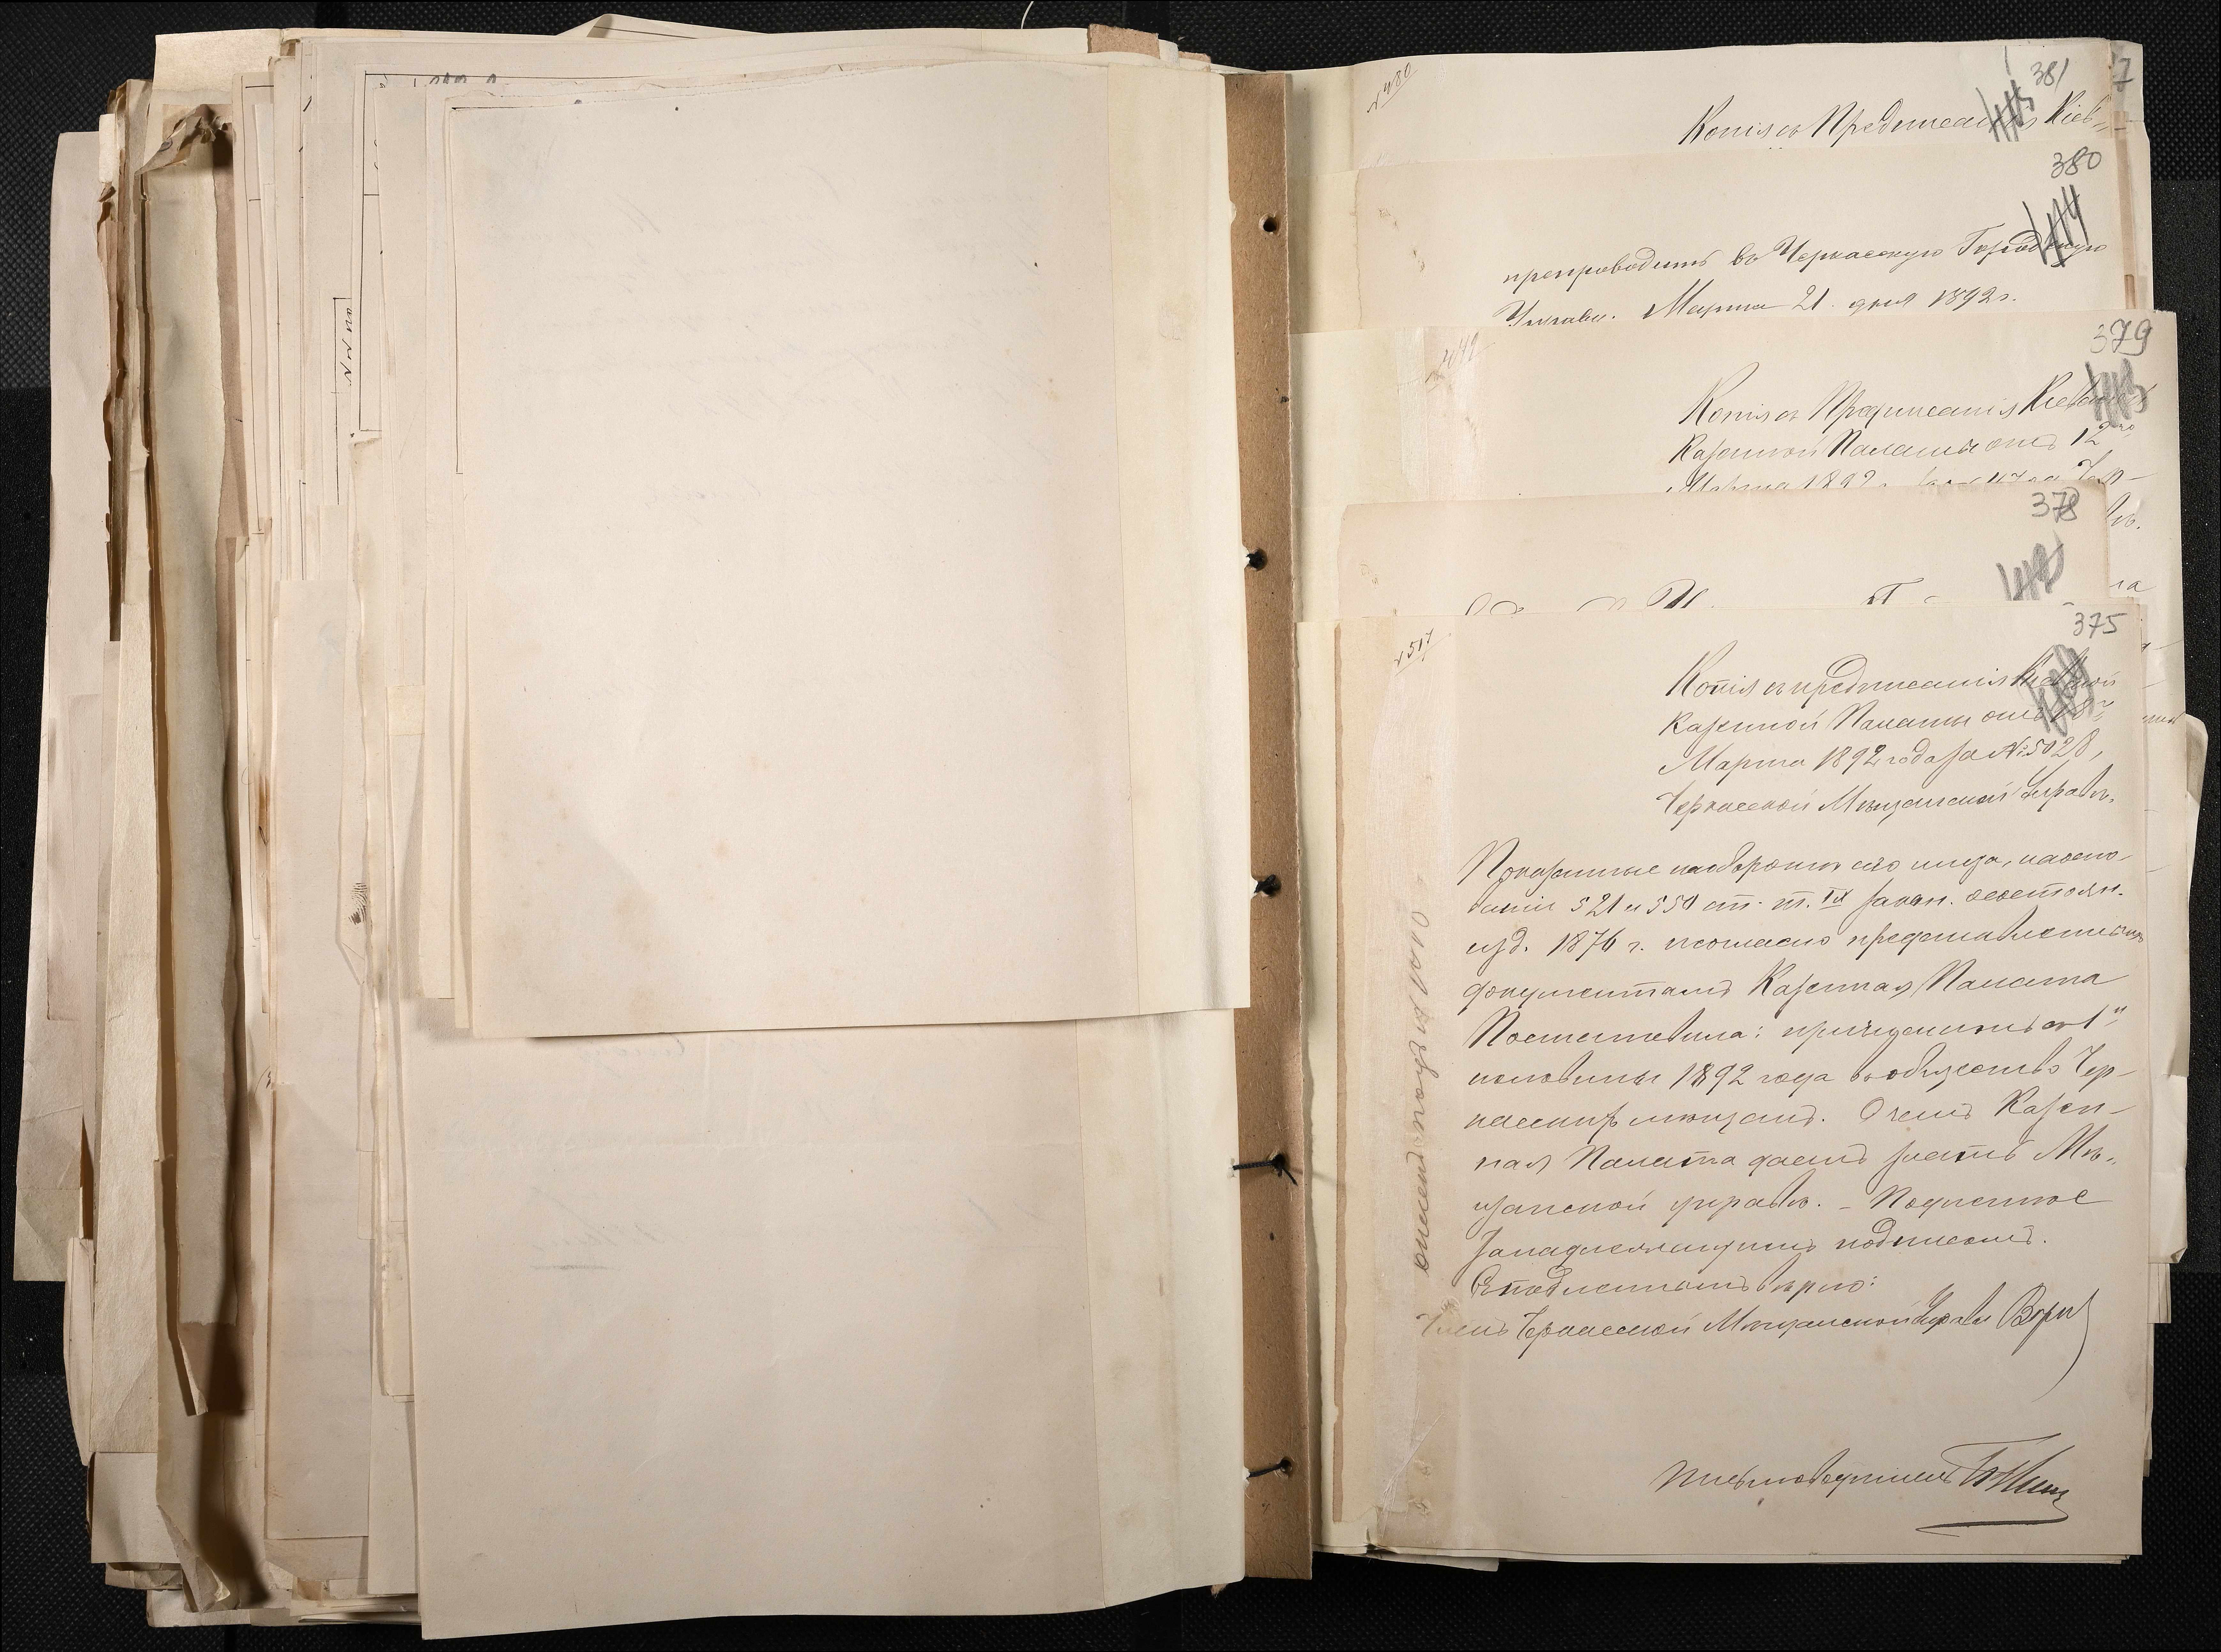 381
7
№ 480
Копія съ Предписанія Кіев„
380
препроводить въ Черкасскую Городскую
Управу. Марта 21 дня 1892 г.
379
Копія съ Предписанія Кіевской
Казенной Палаты отъ 12го
Марта 1892 г. за №
378
375
№ 517
Копія съ предписанія Кіевской
Казенной Палаты отъ
Марта 1892 года за № 5028,
Черкасской Мѣщанской Управѣ.
Показанные на оборотѣ сего лица, на осно-
ваніи 521 и 550 ст. т. IX закон. о состоян.
изд. 1876 г. и согласно представленнымъ
документамъ Казенная Палата
Постановила: причислить съ 1й
половины 1892 года въ общество Чер-
касскихъ мѣщанъ. О чемъ Казен-
ная Палата даетъ знать Мѣ„
щанской управѣ. – Подлинное
за надлежащимъ подписомъ.
Съ подлиннымъ вѣрно:
Членъ Черкасской Мѣщанской Управы
Письмоводитель